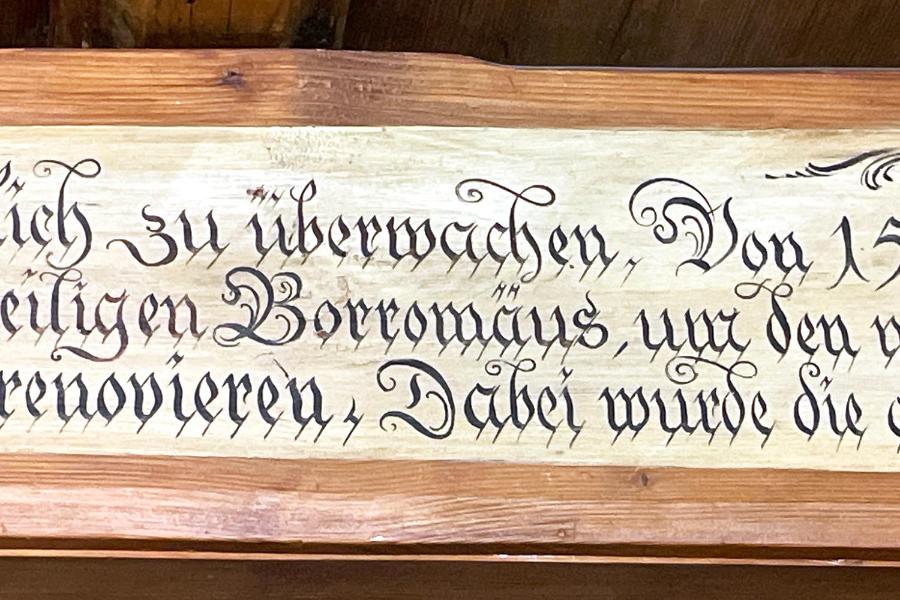 lich zu überwachen. Von 15
eiligen Borromäus, um den
renovieren. Dabei wurde die